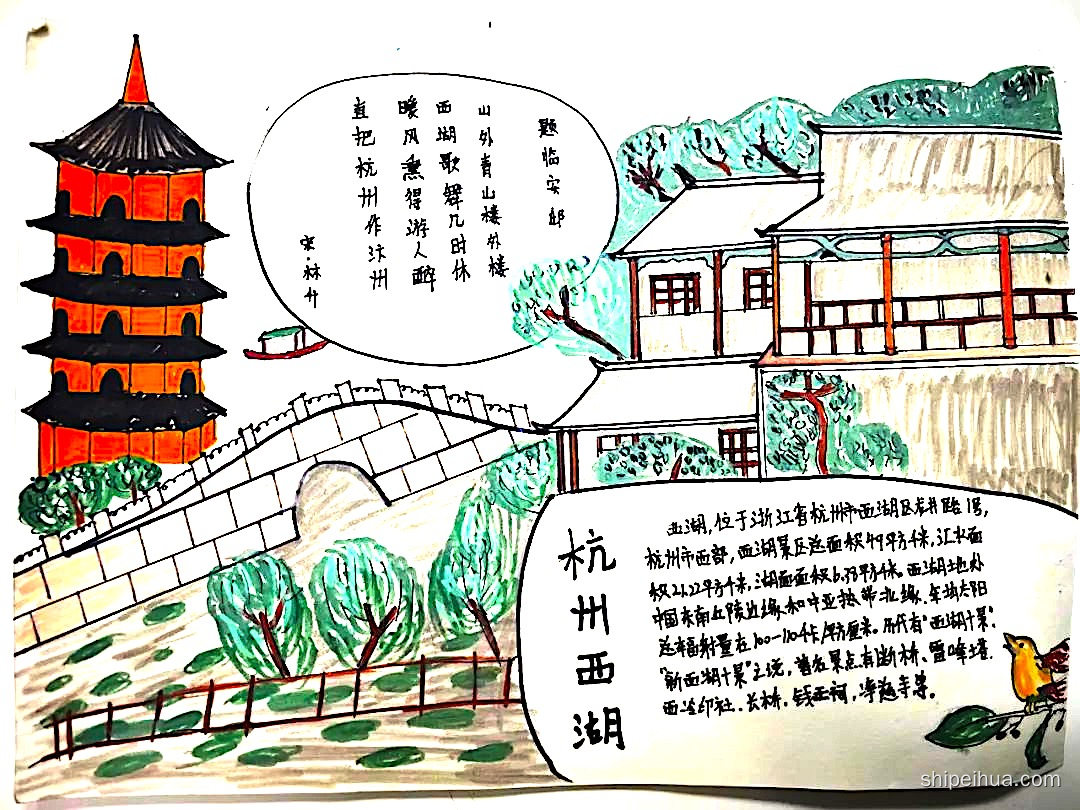 题临安邸
山外青山楼外楼
西湖歌舞几时休
暖风熏得游人醉
直把杭州作汴州
宋·林升
杭州西湖
西湖,位于浙江省杭州市西湖区龙井路1号,
杭州市西部,西湖景区总面积49平方千米,汇水面
积21.22平方千米,湖面面积6.38平方千米。西湖地处
中国东南丘陵边缘和中亚热带北缘,年均太阳
总辐射量在100—110千卡/平方厘米。历代有"西湖十景"
"新西湖十景"之说,著名景点有断桥、雷峰塔.
西泠印社.长桥.钱王祠,净慈寺等。
shipeihua.com